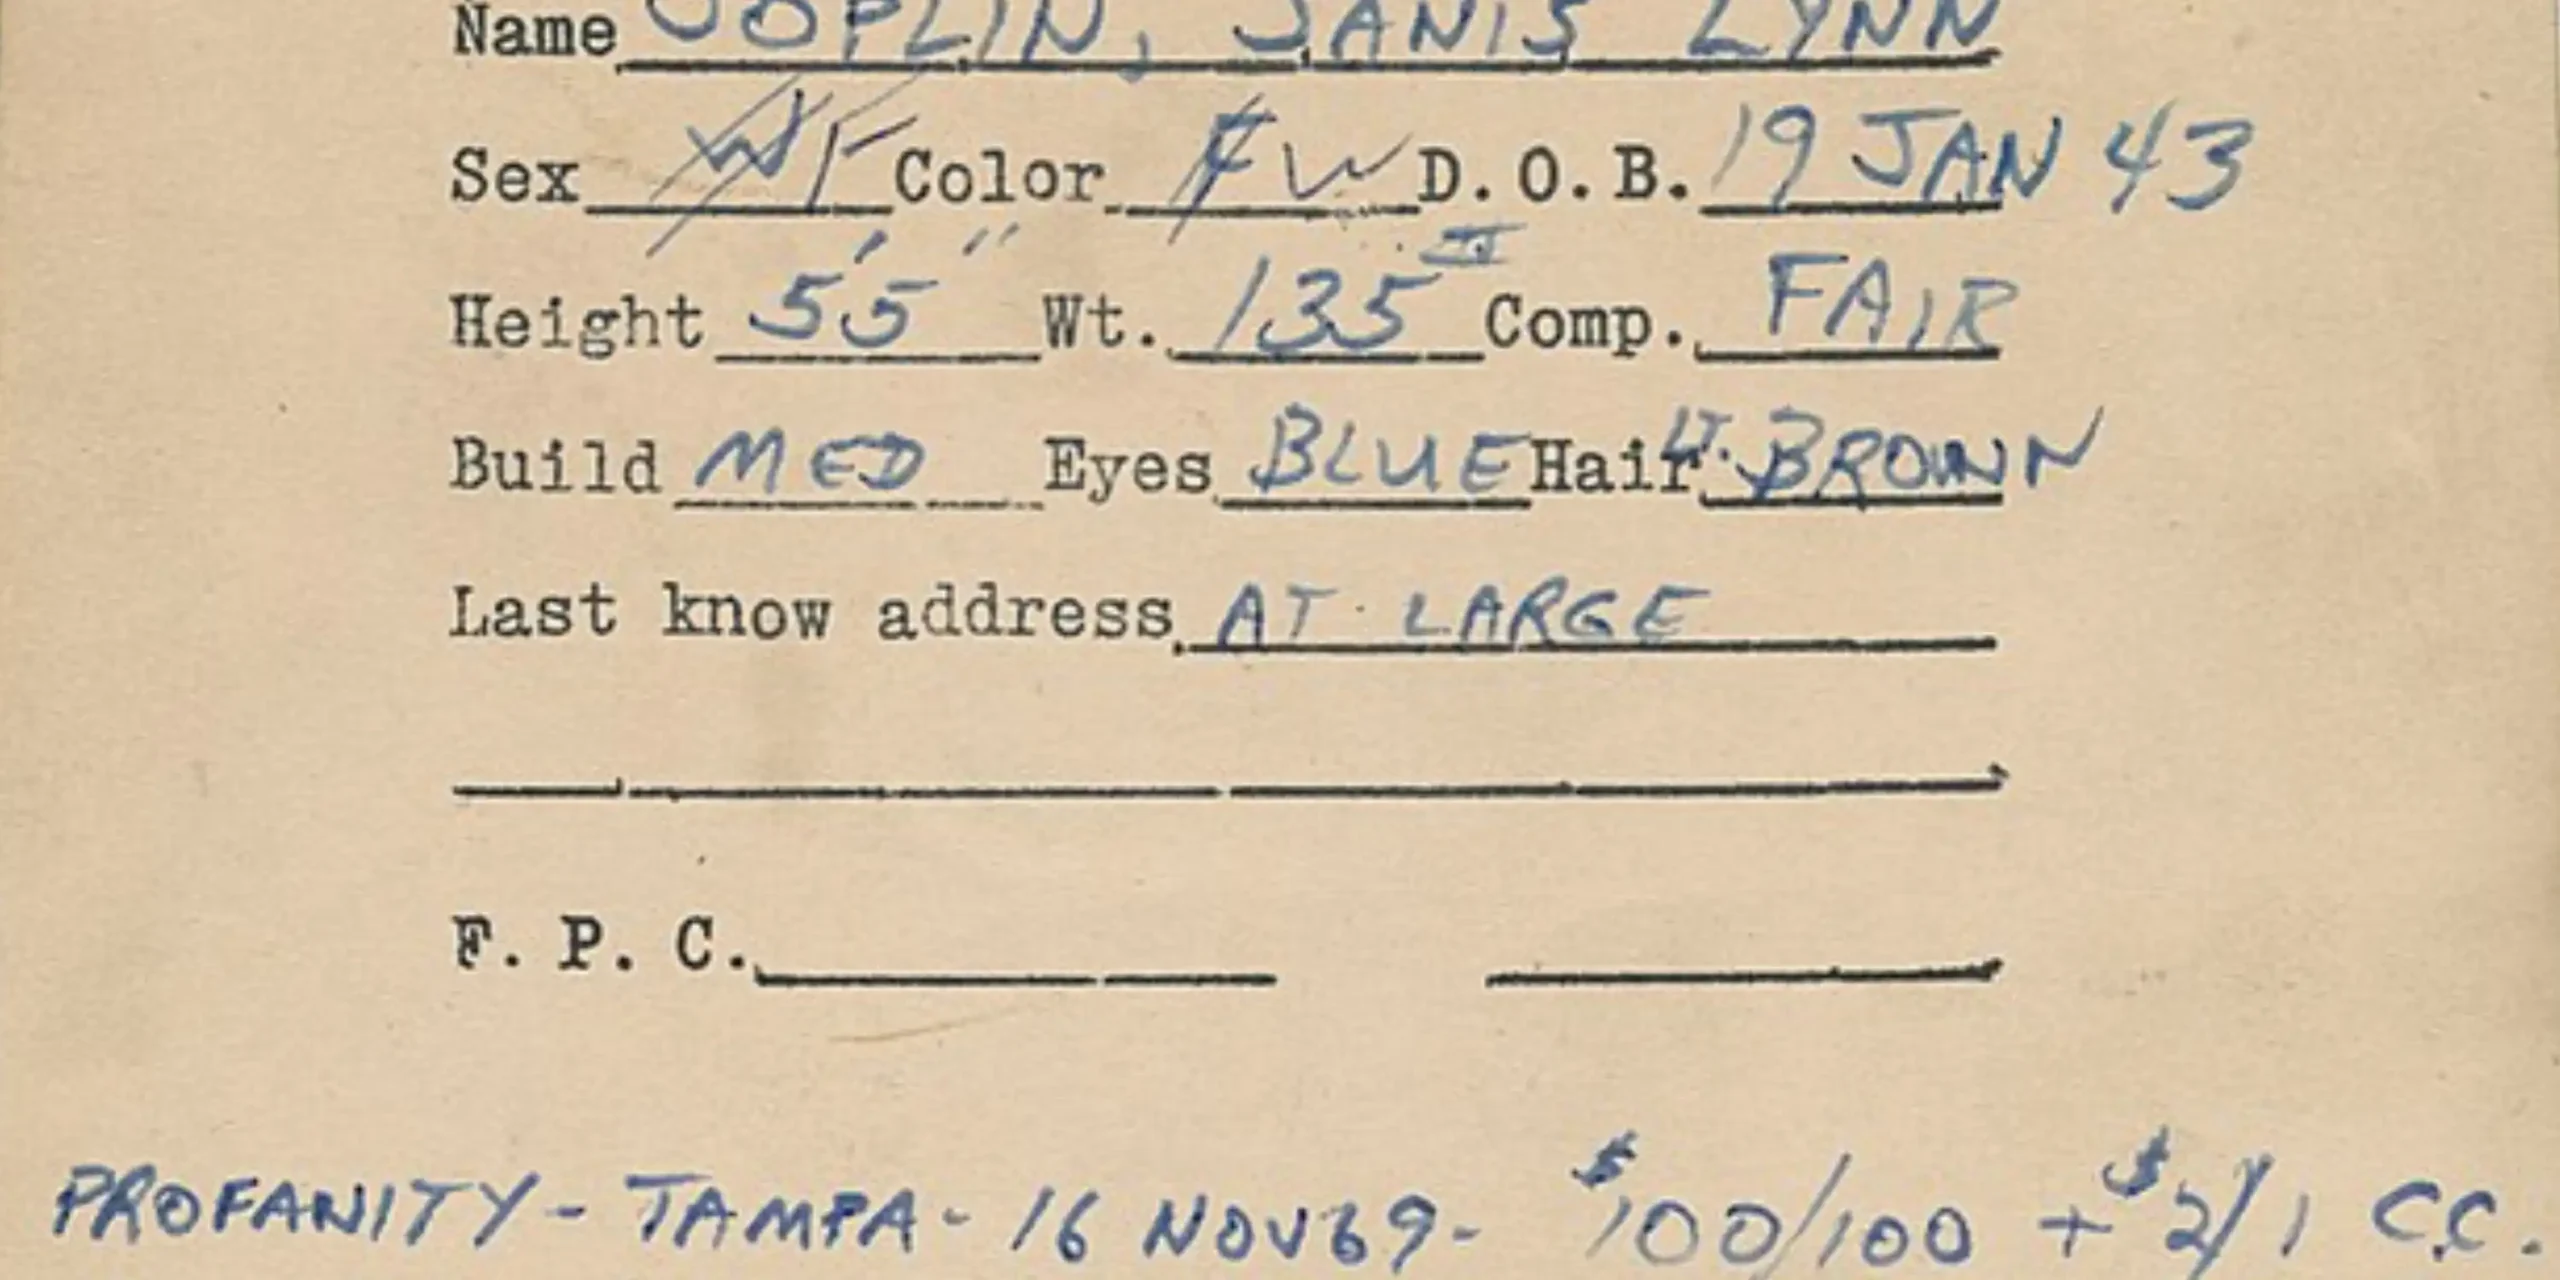 Name JOPLIN, JANIS LYNN
Sex W F Color F W D.O.B. 19 JAN 43
Height 5'5" Wt. 135 Comp. FAIR
Build MED Eyes BLUE Hair LT. BROWN
Last know address AT LARGE
F. P. C.
PROFANITY - TAMPA - 16 NOV 69 - $100/100 + $2/1 C.C.